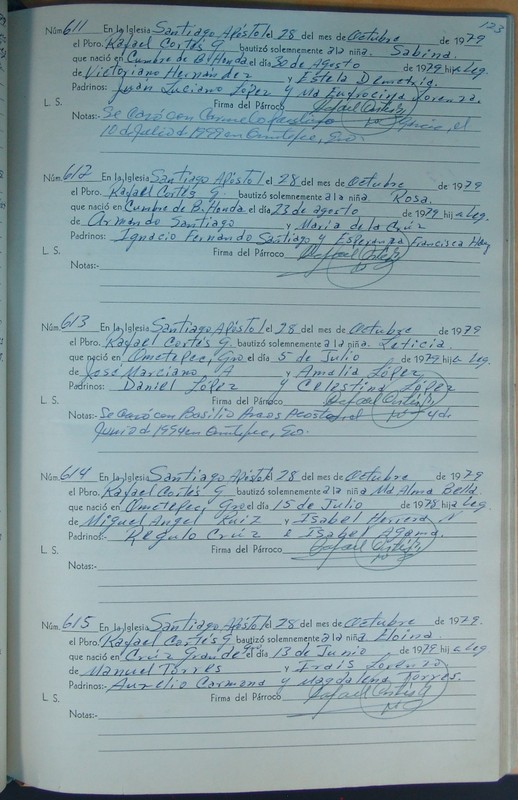 123
Núm. 611 En la Iglesia Santiago Apóstol el 28 del mes de Octubre de 1979
el Pbro. Rafael Cortés G. bautizó solemnemente a la niña. Sabina.
que nació en Cumbre de B. Honda el día 30 de Agosto de 1979 hija Leg.
de Victoriano Hernández y Estela Demetria.
Padrinos: Juan Luciano López y Ma Eufrocina Lorenza.
L. S. Firma del Párroco Rafael Cortés G.
Notas: Se casó con el
10 de Julio d 1999 en Ometepec, Gro.
Núm. 612 En la Iglesia Santiago Apóstol el 28 del mes de Octubre de 1979
el Pbro. Rafael Cortés G. bautizó solemnemente a la niña Rosa.
que nació en Cumbre de B. Honda. el día 23 de agosto de 1979 hija Leg.
de Armando Santiago y Maria de la Cruz
Padrinos: Ignacio Fernando Santiago y Esperanza Francisca
L. S. Firma del Párroco Rafael Cortés G.
Notas:-
Núm. 613 En la Iglesia Santiago Apóstol el 28 del mes de Octubre de 1979
el Pbro. Rafael Cortés G. bautizó solemnemente a la niña. Leticia.
que nació en Ometepec, Gro el día 5 de Julio de 1979 hija Leg.
de José Marciano, A y Amalia López
Padrinos: Daniel López y Celestina López
L. S. Firma del Párroco Rafael Cortés G.
Notas: Se casó con Basilio Acosta, el 4 de
Junio d 1994 en Ometepec, Gro.
Núm. 614 En la Iglesia Santiago Apóstol el 28 del mes de Octubre de 1979
el Pbro. Rafael Cortés G. bautizó solemnemente a la niña Ma Alma Bella.
que nació en Ometepec, Gro el día 15 de Julio de 1978 hija Leg.
de Miguel Angel Ruiz y Isabel Herrera N
Padrinos:- Regulo Cruz e Isabel Agama.
L. S. Firma del Párroco Rafael Cortés G.
Notas:-
Núm. 615 En la Iglesia Santiago Apóstol el 28 del mes de Octubre de 1979.
el Pbro. Rafael Cortés G bautizó solemnemente a la niña Eloina.
que nació en Cruz Grande Gro el día 13 de Junio de 1979 hija Leg
de Manuel Torres y Irais Lorenzo
Padrinos:- Aurelio Carmona y Magdalena Torres.
L. S. Firma del Párroco Rafael Cortés G.
Notas:-